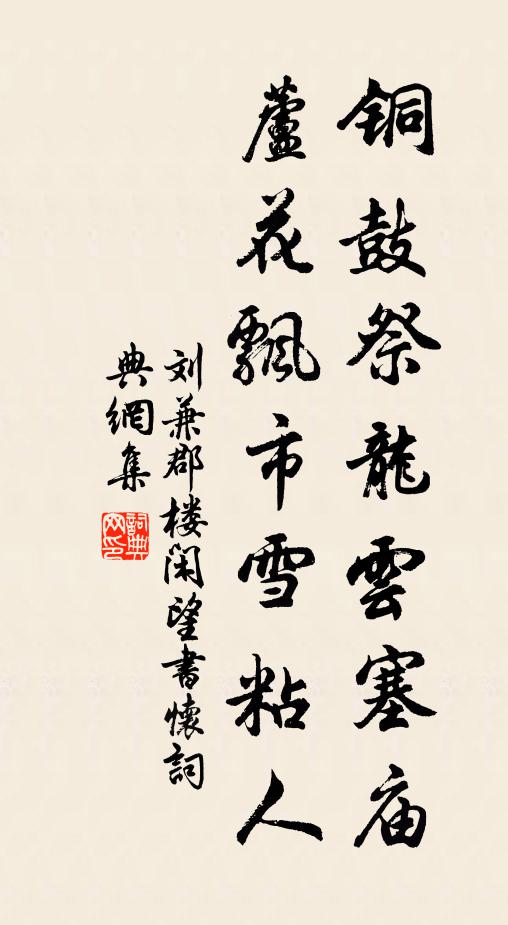 铜鼓祭龍雲塞庙
蘆花飄市雪粘人
刘兼郡楼闲望書懷詞
典網集
詞典網印